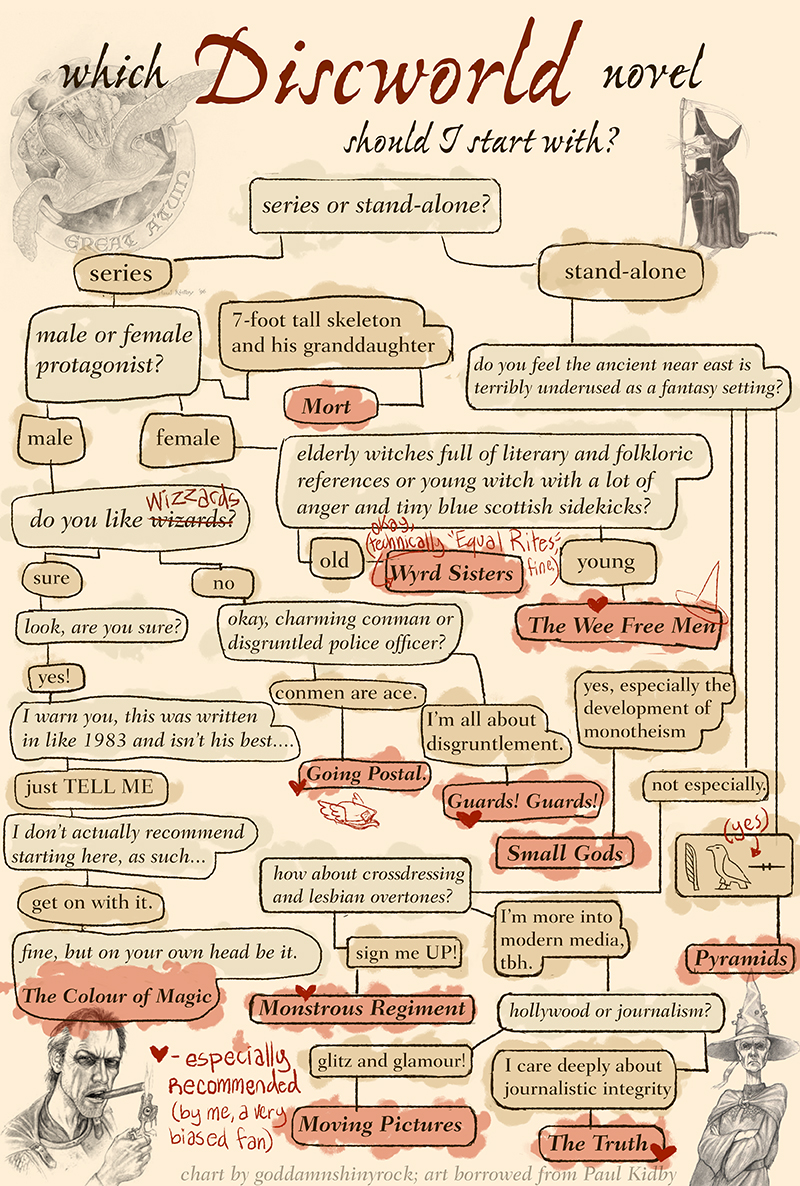 which Discworld novel
should I start with?
GREAT A'TUIN
series or stand-alone?
series
stand-alone
male or female
protagonist?
7-foot tall skeleton
and his granddaughter
Mort
do you feel the ancient near east is
terribly underused as a fantasy setting?
male
female
elderly witches full of literary and folkloric
references or young witch with a lot of
anger and tiny blue scottish sidekicks?
WIZZARDS
do you like wizards?
old
okay,
(technically 'Equal Rites',
fine)
Wyrd Sisters
young
The Wee Free Men
sure
no
look, are you sure?
okay, charming conman or
disgruntled police officer?
yes!
conmen are ace.
yes, especially the
development of
monotheism
I warn you, this was written
in like 1983 and isn't his best....
I'm all about
disgruntlement.
Going Postal.
just TELL ME
Guards! Guards!
not especially.
I don't actually recommend
starting here, as such...
Small Gods
(yes)
how about crossdressing
and lesbian overtones?
get on with it.
I'm more into
modern media,
tbh.
fine, but on your own head be it.
sign me UP!
Pyramids
The Colour of Magic
Monstrous Regiment
hollywood or journalism?
- especially
Recommended
(by me, a very
biased fan)
glitz and glamour!
I care deeply about
journalistic integrity
Moving Pictures
The Truth
chart by goddamnshinyrock; art borrowed from Paul Kidby